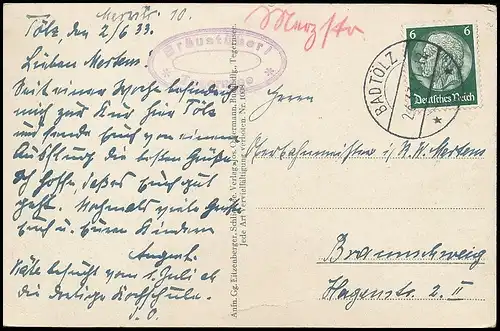 Merzstr. 10.
Tölz, den 2/6 33.
Lieben Mertens!
Seit einer Woche befinde
mich zur Kur hier Tölz
und sende Euch von einem
Ausflug die besten Grüße
Ich hoffe, daß es Euch gut
geht. Nochmals viele Grüße
Euch u. Euren Kindern
August.
Käte besucht vom 1. Juli ab
die Kochschule.
Merzstr
Bräustüberl
Tegernsee
Anim. Gg. Eitzenberger, Schliersee. Verlag Jos. Obermann, Buchhdlg., Tegernsee.
Jede Art Vervielfältigung verboten. Nr. 100
6 6
Deutsches Reich
BAD TÖLZ
Herrn
Oberbahnmeister i/R. W. Mertens
Braunschweig
Hagenstr. 2. II